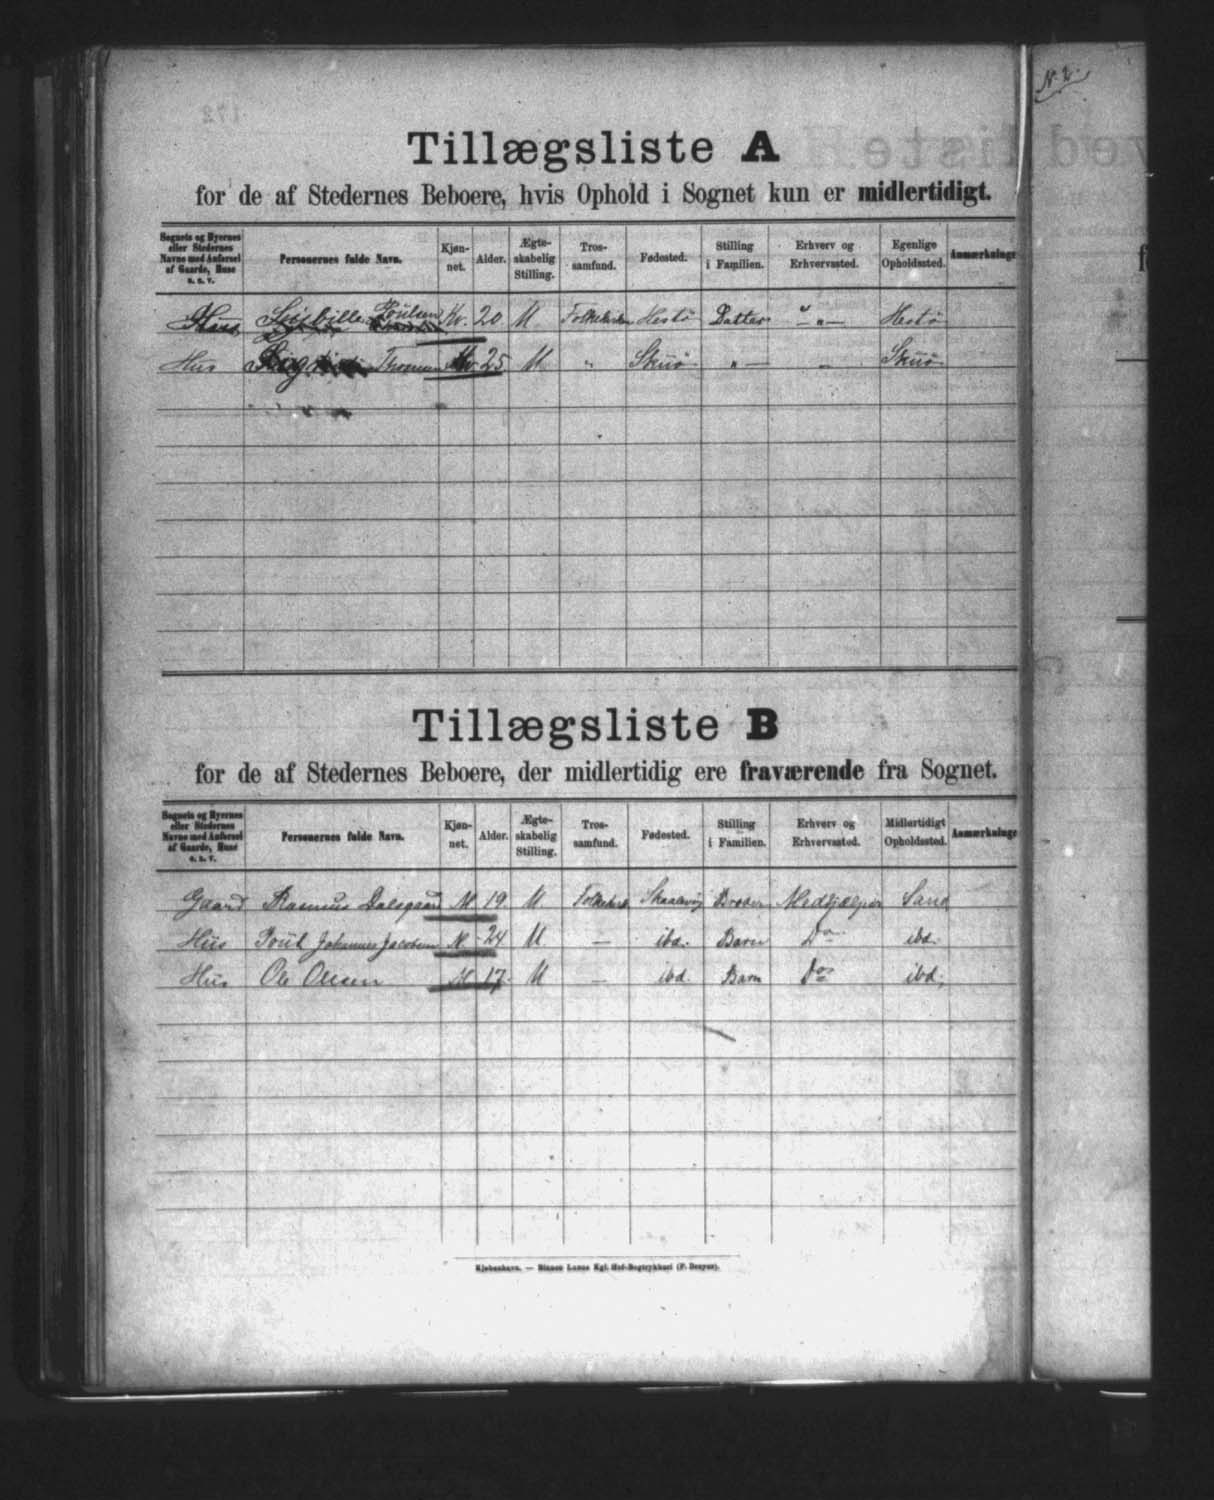 N. 2.
Tillægsliste A
for de af Stedernes Beboere, hvis Ophold i Sognet kun er midlertidigt.
Sognets og Byernes eller Stedernes Navne med Anførsel af Gaarde, Huse o. s. v. Personernes fulde Navn. Kjøn-net. Alder. Ægte-skabelig Stilling. Tros-samfund. Fødested. Stilling i Familien. Erhverv og Erhvervssted. Egenlige Opholdssted. Anmærkninge
Poulsen Kv. 20 U Folkekirken Hestø Datter " — " — Hestø
Hus Thomsen Kv. 25 U " Skuø " — — Skuø
Tillægsliste B
for de af Stedernes Beboere, der midlertidig ere fraværende fra Sognet.
Sognets og Byernes eller Stedernes Navne med Anførsel af Gaarde, Huse o. s. v. Personernes fulde Navn. Kjøn-net. Alder. Ægte-skabelig Stilling. Tros-samfund. Fødested. Stilling i Familien. Erhverv og Erhvervssted. Midlertidigt Opholdssted. Anmærkninge
Gaard Rasmus Dalsgaard M. 19. U. Folkekirk Skaalevig Broder Medhjælper Sand
Hus Poul Johannes Jacobsen M. 24 U. — ibd. Barn Do ibd.
Hus Ole Olesen M. 17. U — ibd. Barn Do ibd.
Kjøbenhavn. — Bianco Lunos Kgl. Hof-Bogtrykkeri (F. Dreyer).